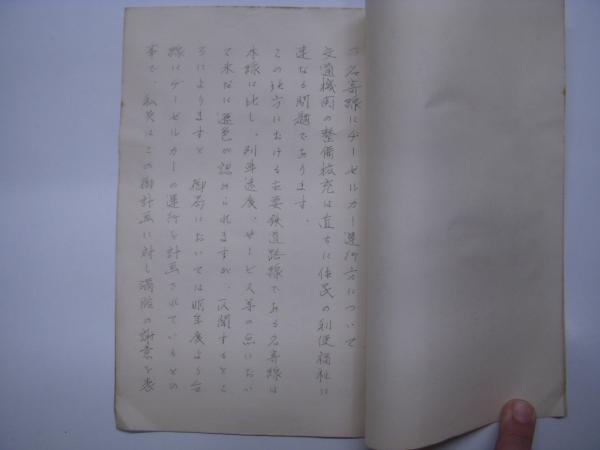 名寄線にヂーゼルカー運行方について
交通機関の整備拡充は直ちに住民の利便福祉に
連なる問題であります。
この地方における主要鉄道路線である名寄線は
本線に比し、列車速度、サービス等の点におい
て未だに遜色が認められますが、仄聞するとこ
ろによりますと 御局においては明年度より台
線にヂーゼルカーの運行を計画されているとの
事で、私共はこの御計画に対し満腔の謝意を表